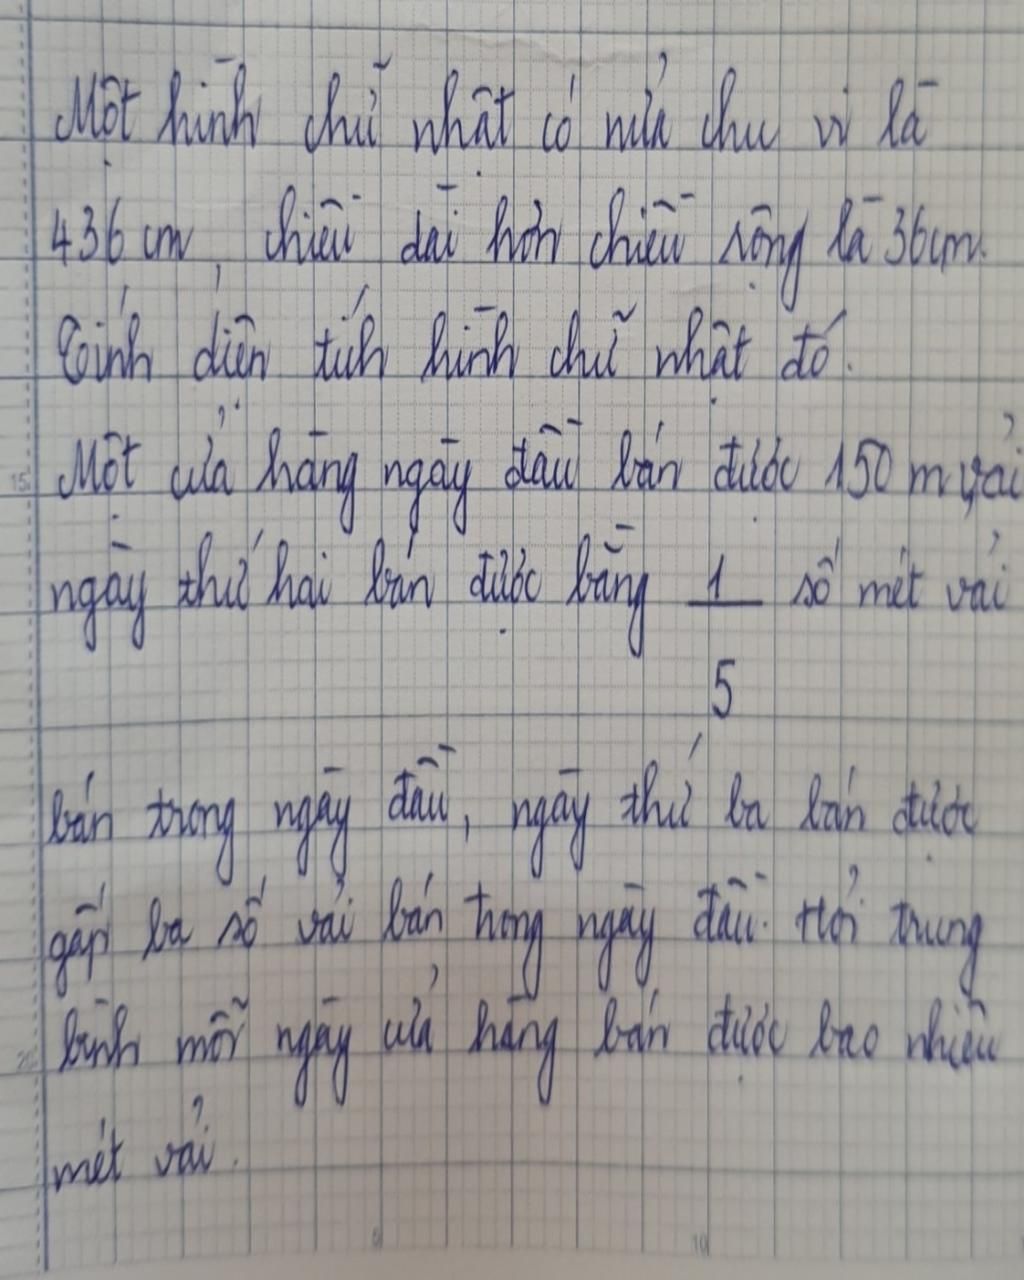 Một hình chữ nhật có nửa chu vi là
436 cm, chiều dài hơn chiều rộng là 36cm.
Tính diện tích hình chữ nhật đó.
Một cửa hàng ngày đầu bán được 150 m vải
ngày thứ hai bán được bằng 1 số mét vải
5
bán trong ngày đầu, ngày thứ ba bán được
gấp ba số vải bán trong ngày đầu. Hỏi trung
bình mỗi ngày cửa hàng bán được bao nhiêu
mét vải.